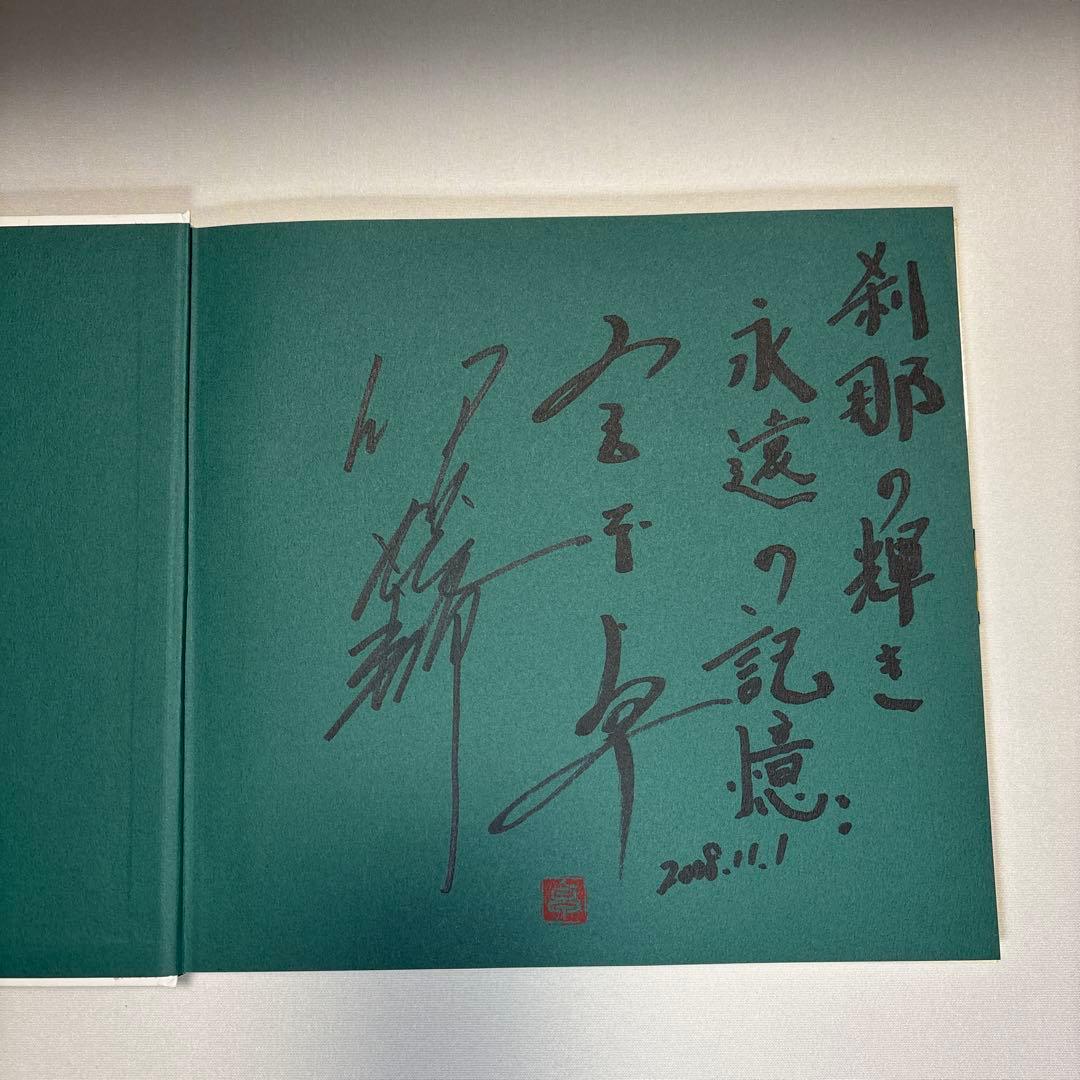 刹那の輝き
永遠の記憶
2008.11.1
宮本卓